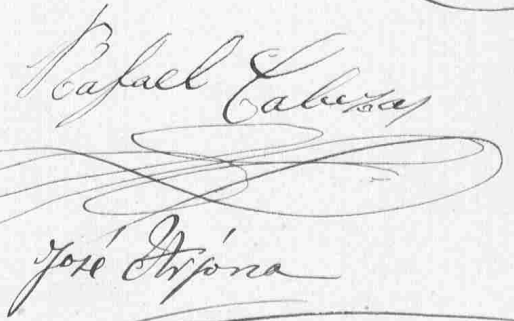 Rafael Cabezas
José Arjona